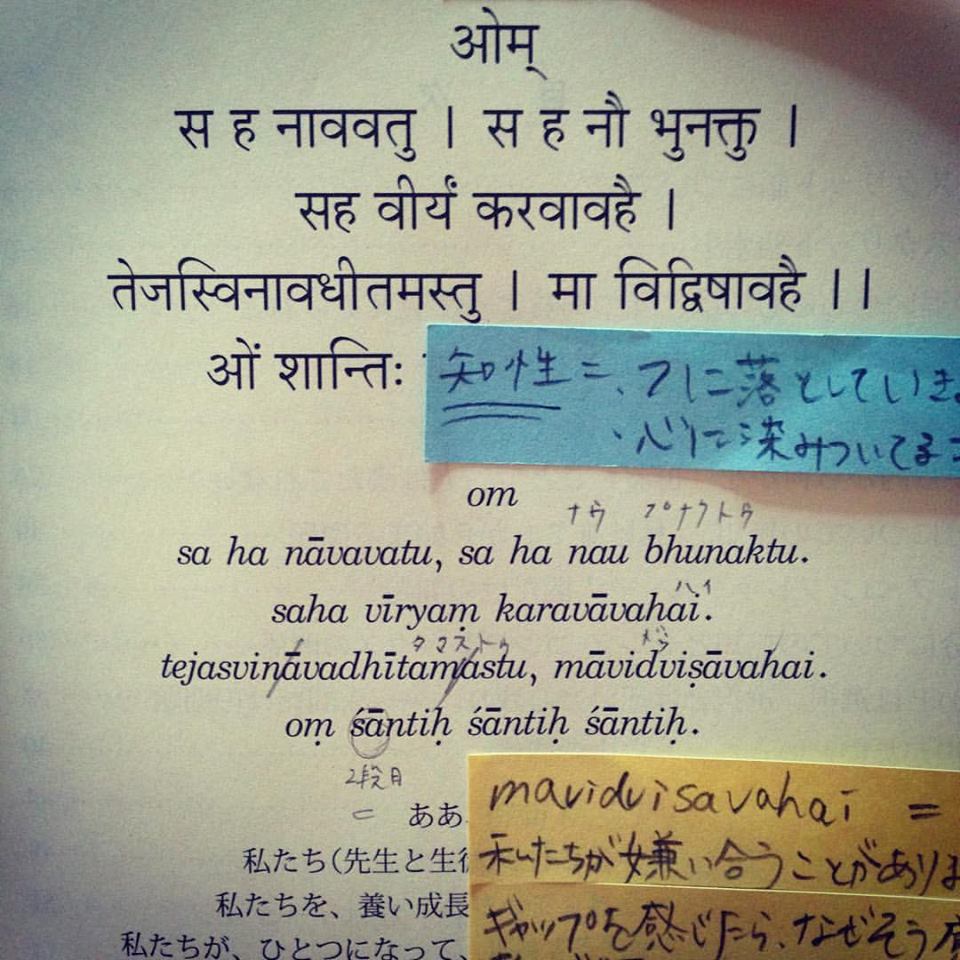 ओम्
स ह नाववतु । स ह नौ भुनक्तु ।
सह वीर्यं करवावहै ।
तेजस्विनावधीतमस्तु । मा विद्विषावहै ।।
ओं शान्तिः
知性 = ・フに落としていき
・心に染みついてる
om
ナウ ブナクトウ
sa ha nāvavatu, sa ha nau bhunaktu.
ハイ
saha vīryaṃ karavāvahai.
タマストゥ
tejasvināvadhītamastu, māvidviṣāvahai.
oṃ śāntiḥ śāntiḥ śāntiḥ.
2段目
ああ
mavidvisavahai =
私たち(先生と生徒
私たちが嫌い合うことがありま
私たちを、養い成長
ギャップを感じたら、なぜそう
私たちが、ひとつになって、